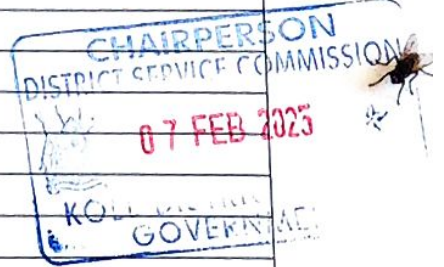 CHAIRPERSON
DISTRICT SERVICE COMMISSION
07 FEB 2025
GOVERNME